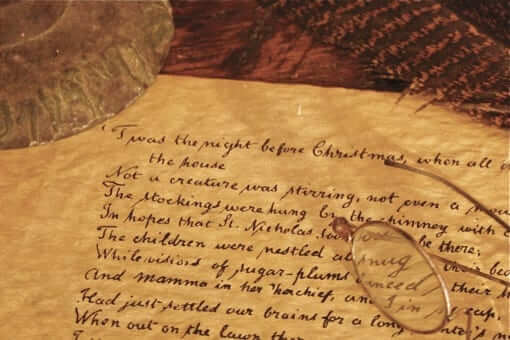 'Twas the night before Christmas, when all
the house
Not a creature was stirring, not even a
The stockings were hung by the chimney with
In hopes that St. Nicholas be there;
The children were nestled all snug their
While visions of sugar-plums their
And mamma in her 'kerchief, and I in
Had just settled our brains for a long
When out on the lawn